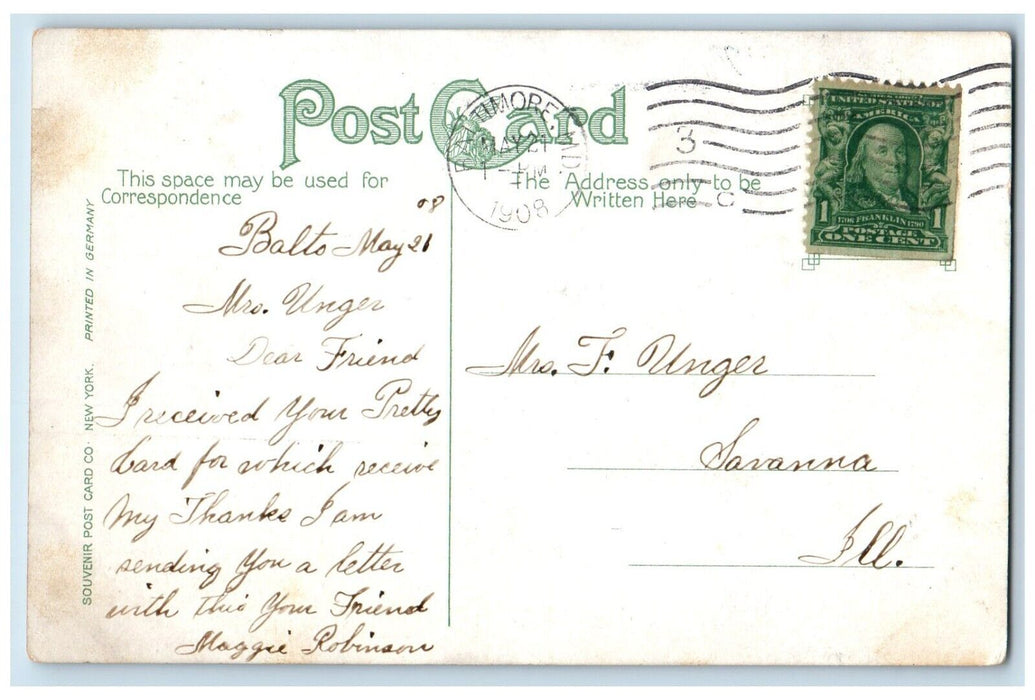 Post Card
This space may be used for
Correspondence
The Address only to be
Written Here
BALTIMORE, MD.
MAY 21
1 - PM
1908
3
C
UNITED STATES OF
AMERICA
1 1706 FRANKLIN 1790 1
POSTAGE
ONE CENT
SOUVENIR POST CARD CO. NEW YORK. PRINTED IN GERMANY
08
Balto May 21
Mrs. Unger
Dear Friend
I received Your Pretty
Card for which receive
My Thanks I am
sending You a letter
with this Your Friend
Maggie Robinson
Mrs. F. Unger
Savanna
Ill.